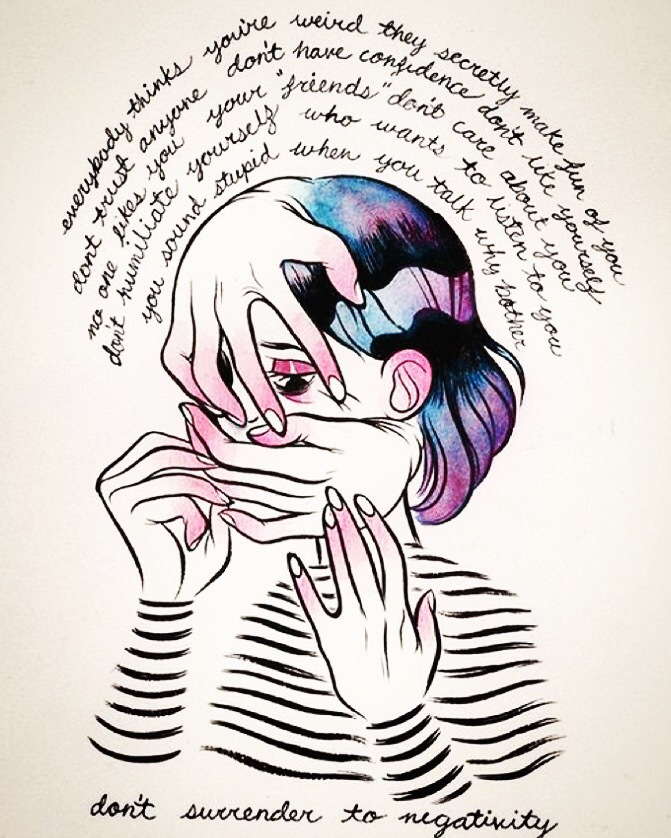 everybody thinks you're weird they secretly make fun of you
don't trust anyone don't have confidence don't like yourself
no one likes you your "friends" don't care about you
don't humiliate yourself who wants to listen to you
you sound stupid when you talk why bother
don't surrender to negativity